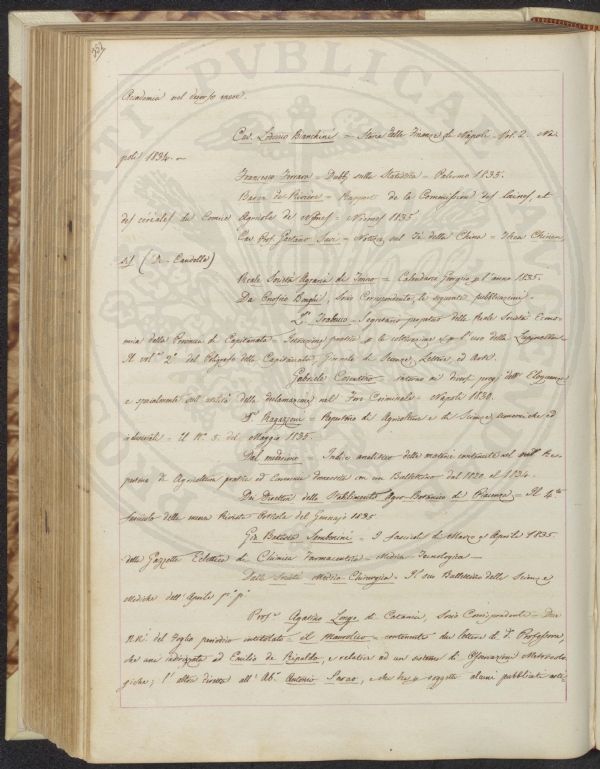 Academia nel decorso mese.
Cav. Lodovico Bianchini = Storia delle Finanze di Napoli. Vol. 2. Na-
poli 1834. =
Francesco Ferrara = Dubbj sulla Statistica = Palermo 1835.
Baron des Rivière = Rapport de la Commission des laines et
des cereales du Comice Agricole de Nismes = Nismes 1835.
Cav. Prof. Gaetano Savi = Notizia sul Tè della China = Thea Chinen-
sis (De-Candolle)
Reale Società Agraria di Torino = Calendario Georgico p. l'anno 1835.
Da Onofrio Bonghi, Socio Corrispondente, le seguenti pubblicazioni.
Trabucco = Segretario perpetuo della Reale Società Econo-
mia della Provincia di Capitanata = Istruzioni pratiche p. la coltivazione e p. l'uso della
Il vol.e 2.o del Poligrafo della Capitanata, Giornale di Scienze, Lettere, ed Arti.
Gabriele Cosentino = intorno ai diversi pregi dell'Eloquenza
e specialmente sull'utilità della declamazione nel Foro Criminale = Napoli 1834.
Ragazzoni = Repertorio di Agricoltura e di Scienze economiche ed
industriali = il N.o 5. del Maggio 1835.
Dal medesimo = Indice analitico delle materie contenute nel Re-
pertorio di Agricoltura pratica ed Economia domestica con un Bullettino dal 1820 al 1834.
Da Direttori dello Stabilimento Agro-Botanico di Piacenza = Il 4.to
fascicolo della nuova Rivista Agricola del Gennajo 1835
Gio. Battista Sembenini = I fascicoli di Marzo e Aprile 1835
della Gazzetta Eclettica di Chimica Farmaceutica = Medica = Tecnologica =
Dalla Società Medico Chirurgica. Il suo Bullettino delle Scienze
Mediche dell'Aprile p.o p.o
Prof.e Agatino Longo di Catania, Socio Corrispondente = Due
N.ri del Foglio periodico intitolato = il Maurolico = contenenti due lettere di d. Professore,
che una indirizzata ad Emilio de Tipaldo, e relativa ad un sistema di Osservazioni Meteorolo-
giche; l'altra diretta all'Ab. Antonio , che ha p. soggetto alcuni pubblicati